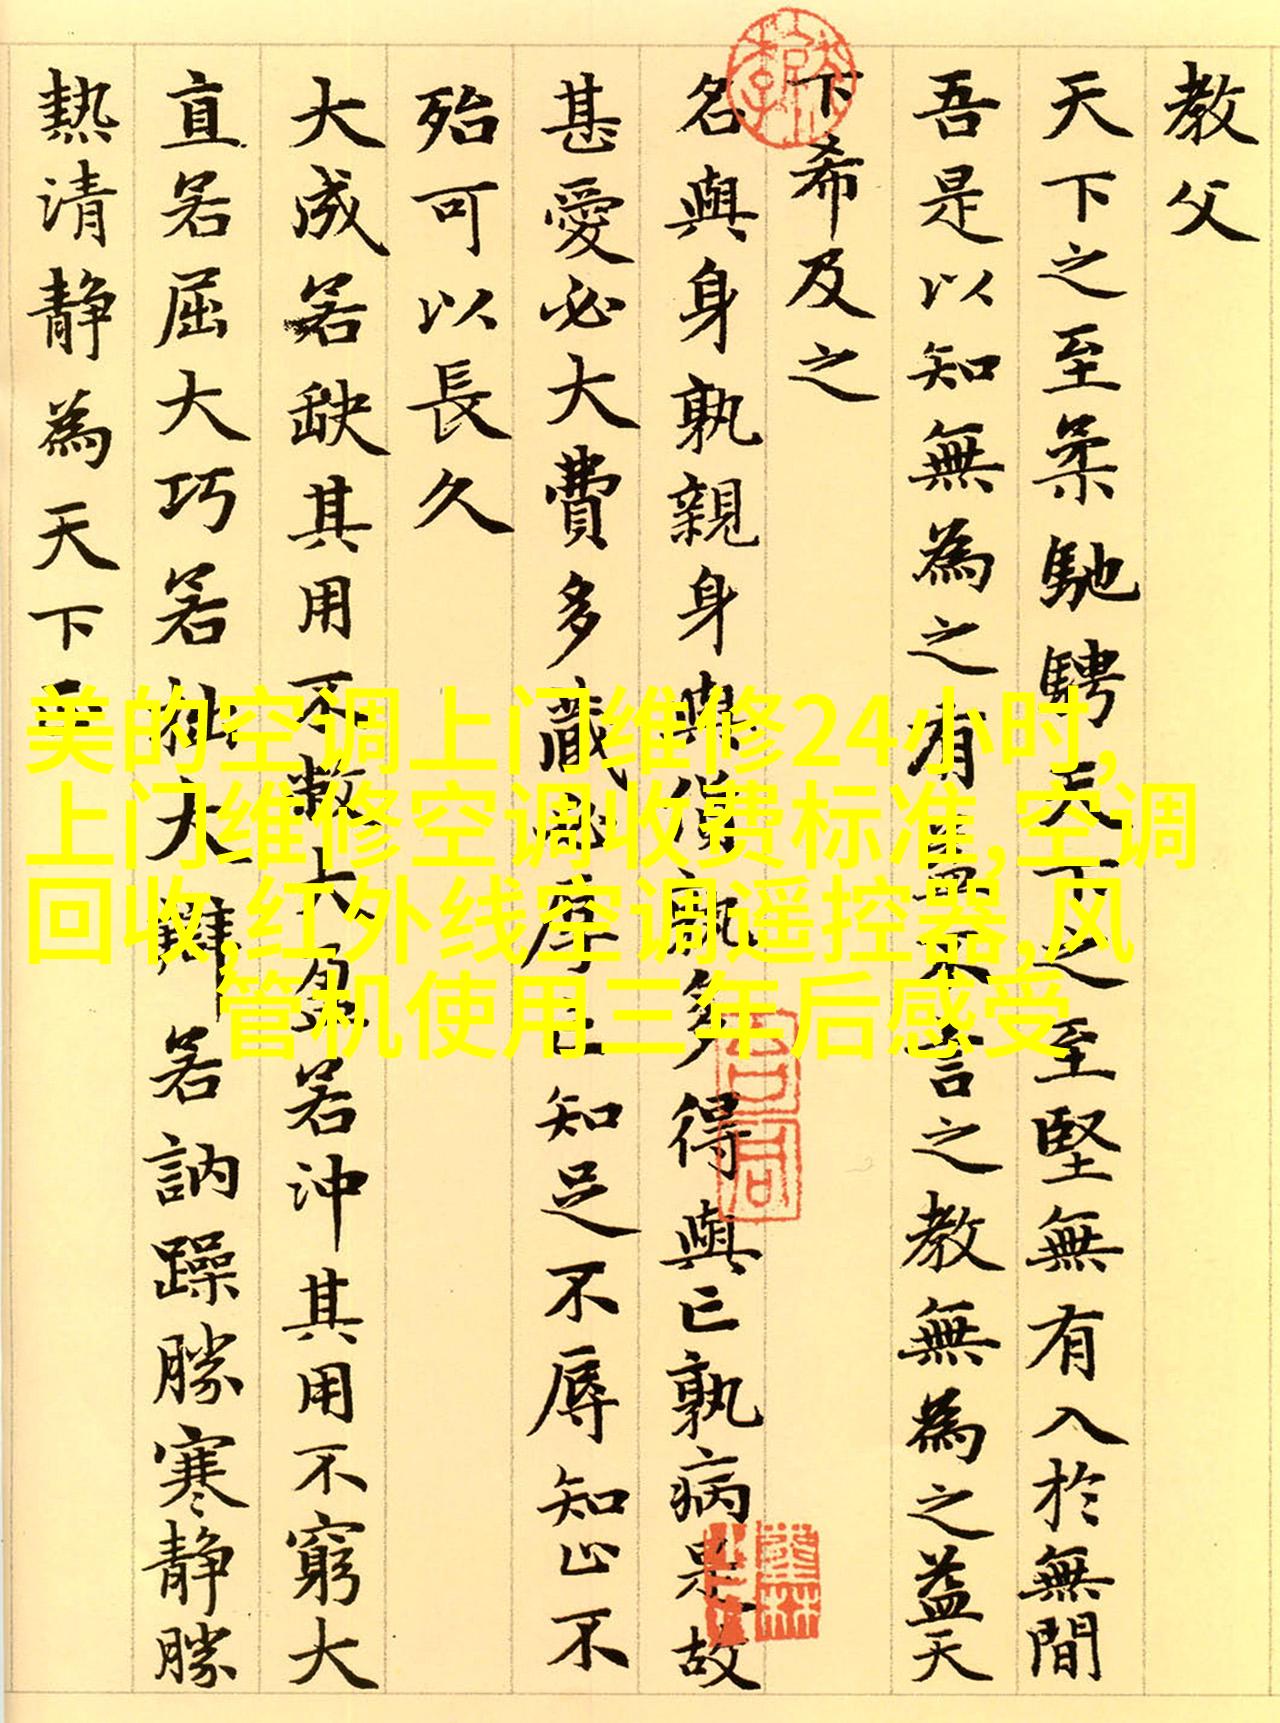 教父
天下之至柔馳騁天下之至堅無有入於無間
吾是以知無為之有益不言之教無為之益天
下希及之
名與身孰親身與貨孰多得與亡孰病是故
甚愛必大費多藏必厚亡知足不辱知止不
殆可以長久
大成若缺其用不敝大盈若沖其用不窮大
直若屈大巧若拙大辯若訥躁勝寒靜勝
熱清靜為天下正
美的空调上门维修24小时,
上门维修空调收费标准,空调
回收,红外线空调遥控器,风
管机使用三年后感受